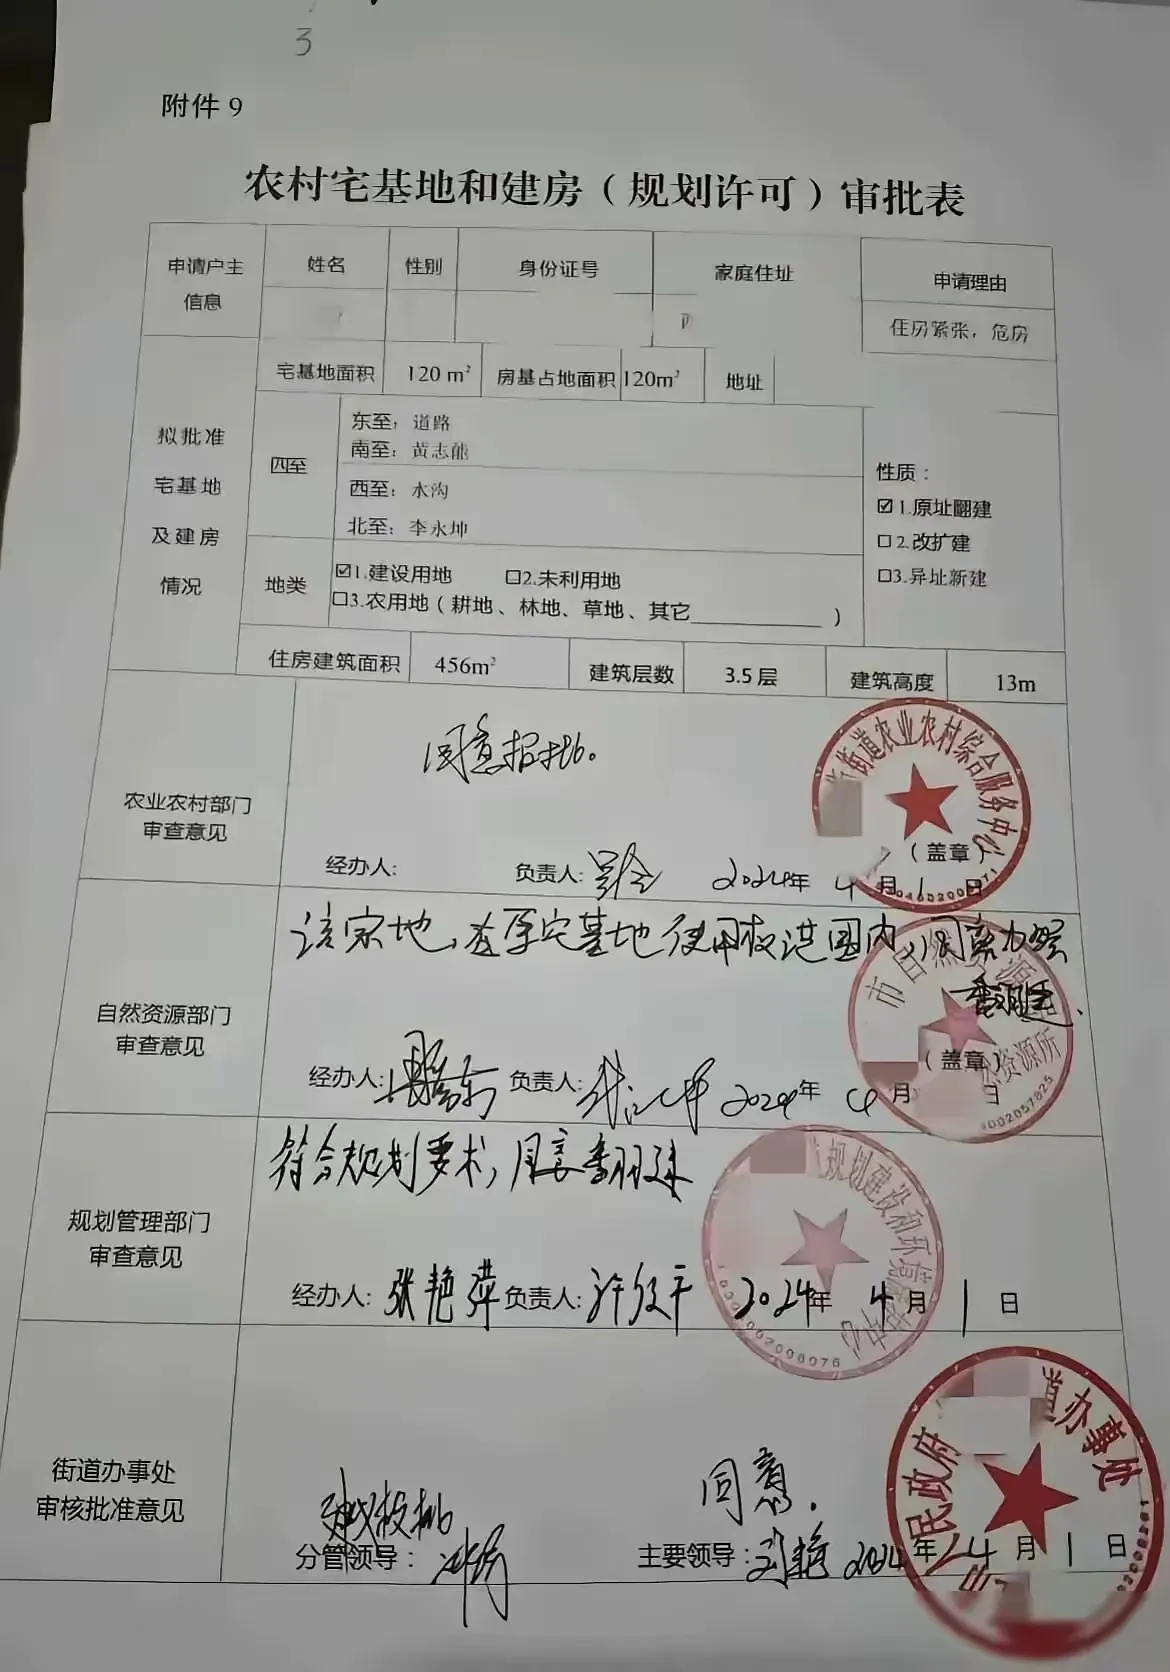 3
附件 9
农村宅基地和建房（规划许可）审批表
申请户主
信息
姓名
性别
身份证号
家庭住址
申请理由
住房紧张，危房
拟批准
宅基地
及建房
情况
宅基地面积
120 m²
房基占地面积
120m²
地址
四至
东至：道路
南至：黄志能
西至：水沟
北至：李永坤
性质：
☑1.原址翻建
☐2.改扩建
☐3.异址新建
地类
☑1.建设用地 ☐2.未利用地
☐3.农用地（耕地、林地、草地、其它____________）
住房建筑面积
456m²
建筑层数
3.5层
建筑高度
13m
农业农村部门
审查意见
同意报批。
经办人:
负责人:
2024年 4月 1日
（盖章）
街道农业农村综合服务中心
自然资源部门
审查意见
该宗地，在原宅基地使用权范围内，同意办理
翻建.
经办人:
负责人:
2024年 4月 日
（盖章）
市自然资源
资源所
规划管理部门
审查意见
符合规划要求，同意翻建
经办人: 张艳萍 负责人: 2024年 4月 1日
规划建设和环境
中心
街道办事处
审核批准意见
同意.
分管领导：
主要领导: 刘艳 2024年 4月 1日
人民政府
道办事处